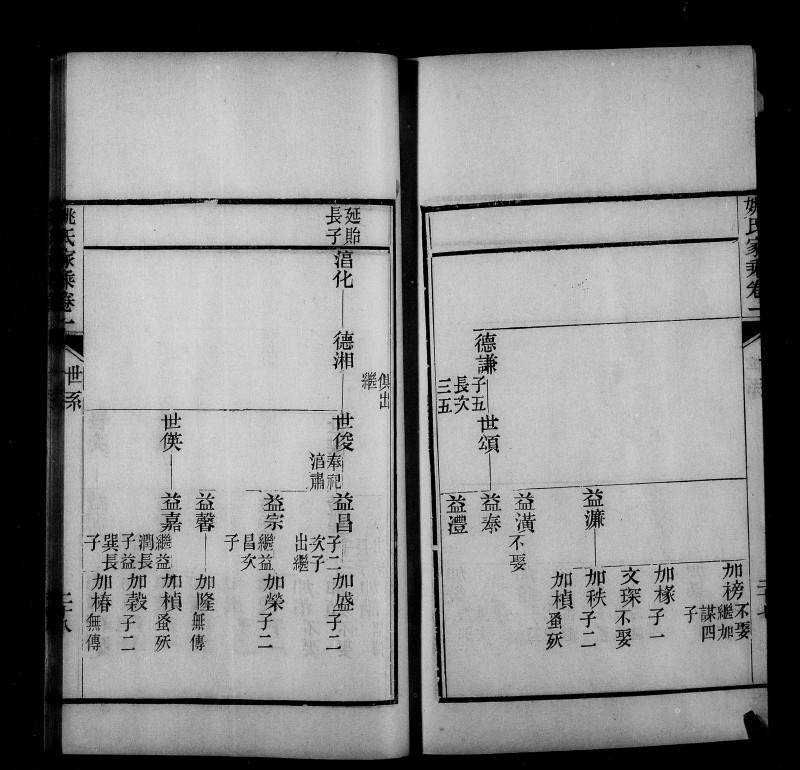 姚氏家乘卷一
加榜 不娶
繼加
謀四
子
加椽 子一
文琛 不娶
益濂
加秩 子二
加楨 蚤殀
益潢 不娶
德謙
子五
長次
三五
世頌
益奉
益澧
延貽
長子
湻化
德湘
俱出
繼
世俊
奉祀
湻肅
益昌
子二
次子
出繼
加盛 子二
益宗
繼益
昌次
子
加榮 子二
益馨
加隆 無傳
世僙
益嘉
繼益
潤長
子益
巽長
子
加楨 蚤殀
加穀 子二
加椿 無傳
姚氏家乘卷一
世系
二十八